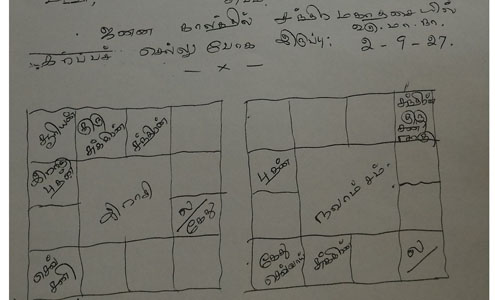 ஜனன காலத்தில் சந்திர மகாதசையில்
வரு. மா. நா.
கர்ப்பச் செல்லு போக இருப்பு: 2 - 9 - 27.
— x —
சூரியன்
குரு
சுக்கிரன்
சந்திரன்
ராகு
புதன்
ராசி
ல/
கேது
செவ்
சனி
சந்திரன்
குரு
சனி
ராகு
புதன்
நவாம்சம்
கேது
செவ்வாய்
சுக்கிரன்
ல/